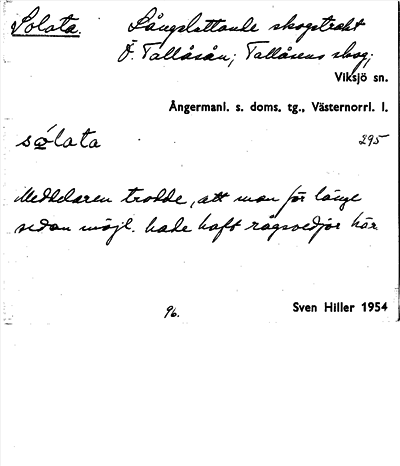 Solata. Långsluttande skogstrakt
Ö. Tallåsån; Tallåsens skog;
Viksjö sn.
Ångermanl. s. doms. tg., Västernorrl. l.
sólata 295
Meddelaren trodde, att man för länge
sedan möjl. hade haft rågsvedjor här
96. Sven Hiller 1954